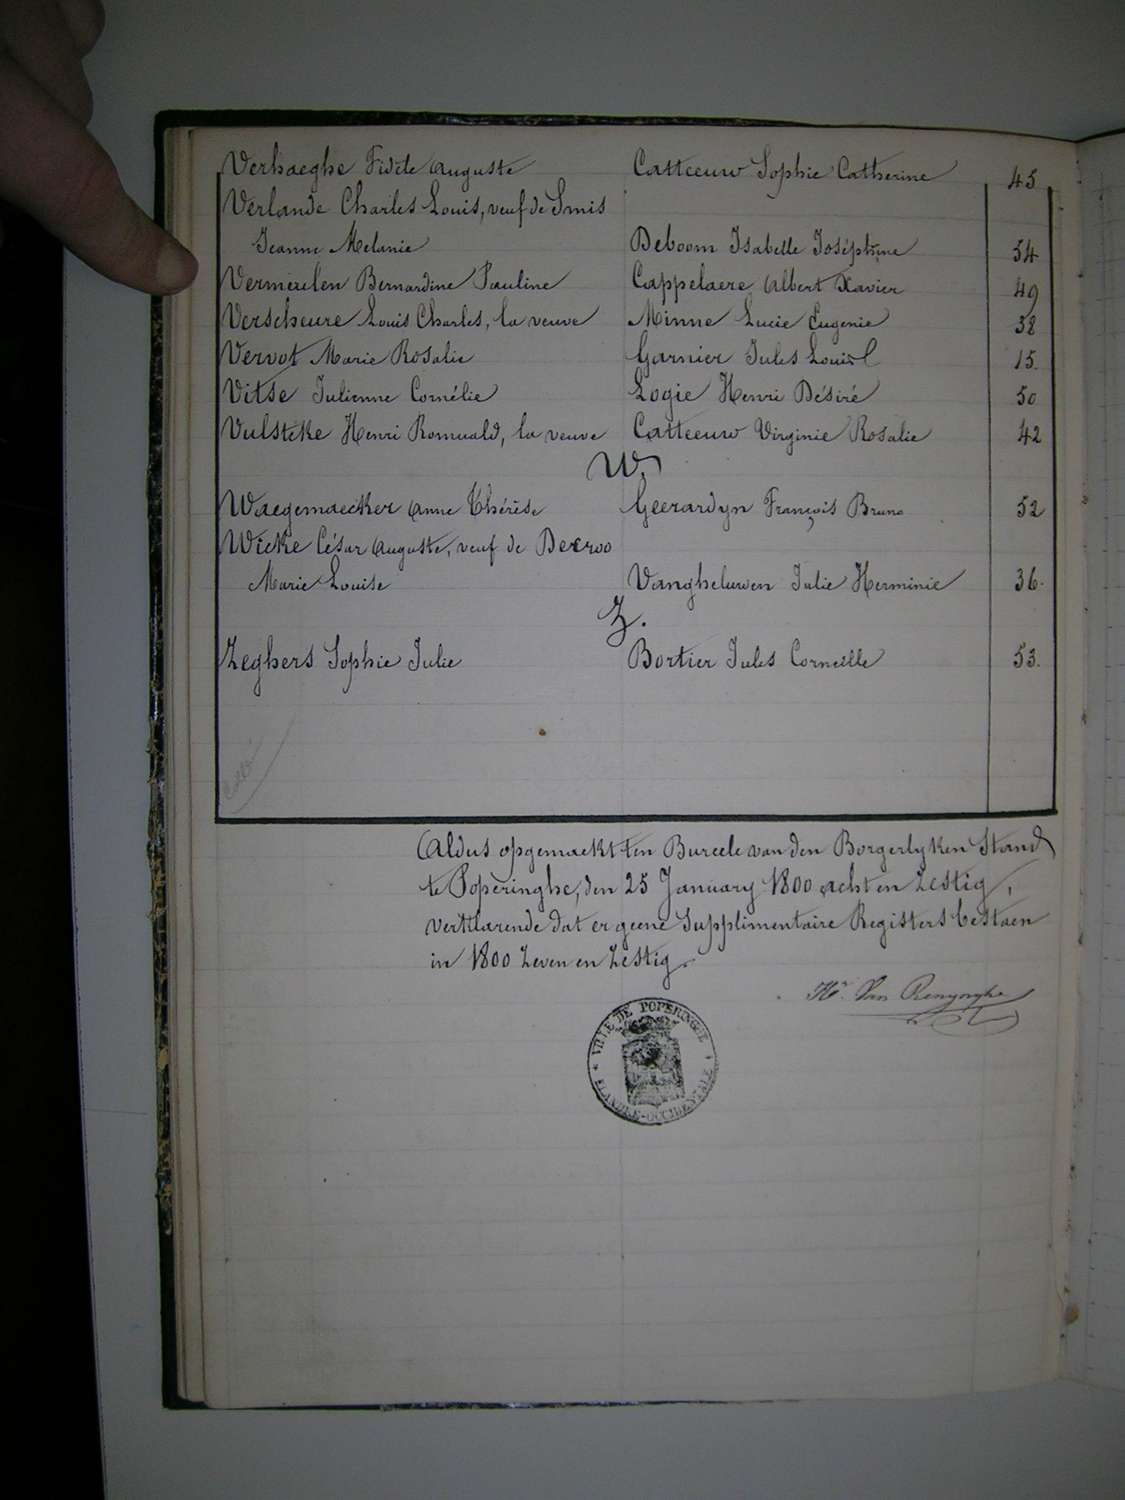 Verhaeghe Fidele Auguste Catteeuw Sophie Catherine 45
Verlande Charles Louis, veuf de Smis
Jeanne Melanie Deboom Isabelle Joséphine 54
Vermeulen Bernardine Pauline Cappelaere Albert Xavier 49
Verscheure Louis Charles, la veuve Minne Lucie Eugenie 38
Vervot Marie Rosalie Garnier Jules Louis 15.
Vitse Julienne Cornélie Logie Henri Désiré 50
Vulsteke Henri Romuald, la veuve Catteeuw Virginie Rosalie 42
W.
Waegemaecker Anne Thérèse Geerardyn François Bruno 52
Wicke César Auguste, veuf de Decroo
Marie Louise Vangheluwen Julie Herminie 36.
Z.
Zeghers Sophie Julie Bortier Jules Corneille 53.
Aldus opgemaekt ten Bureele van den Borgerlyken Stand
te Poperinghe, den 25 January 1800 acht en Zestig,
verklarende dat er geene Supplimentaire Registers bestaen
in 1800 Zeven en Zestig.
VILLE DE POPERINGHE
FLANDRE-OCCIDENTALE